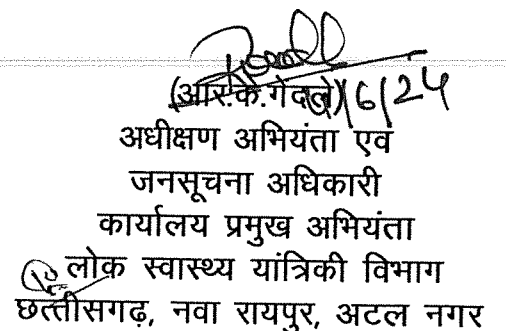 (आर.के.गेदले)/6/24
अधीक्षण अभियंता एवं
जनसूचना अधिकारी
कार्यालय प्रमुख अभियंता
लोक स्वास्थ्य यांत्रिकी विभाग
छत्तीसगढ़, नवा रायपुर, अटल नगर